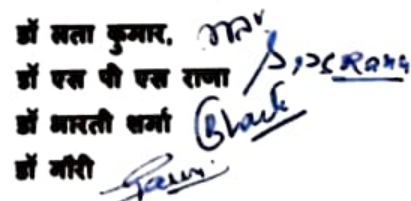 डॉ लता कुमार,
डॉ एस पी एस राणा S.PS Rana
डॉ भारती शर्मा Bharti
डॉ गौरी Gauri